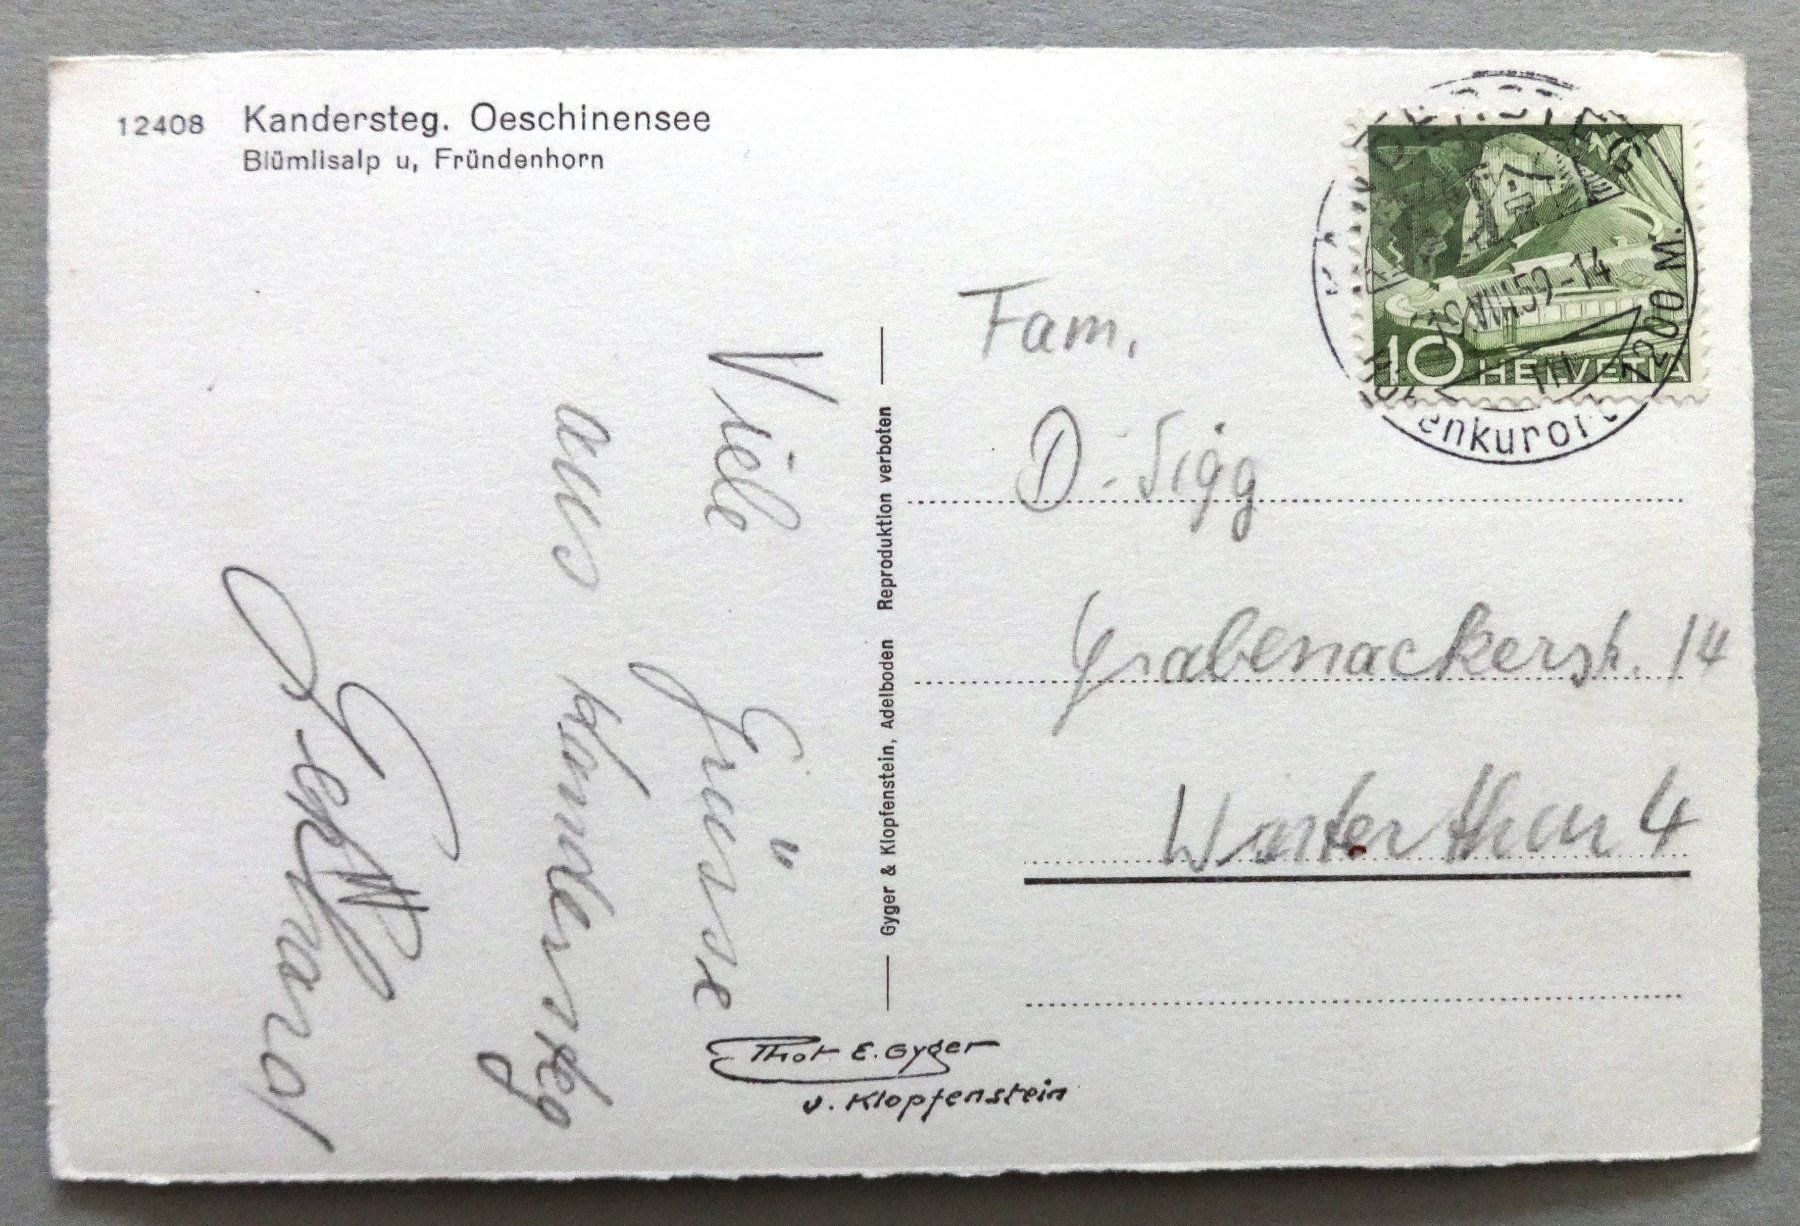 12408 Kandersteg. Oeschinensee
Blümlisalp u, Fründenhorn
Viele Grüsse
aus Kandersteg
Gebhard
Gyger & Klopfenstein, Adelboden Reproduktion verboten
Phot E. Gyger
u. Klopfenstein
KANDERSTEG
VIII.59-14
1200 M.
Höhenkurort
10 HELVETIA
Fam.
D. Sigg
Grabenackerstr. 14
Winterthur 4